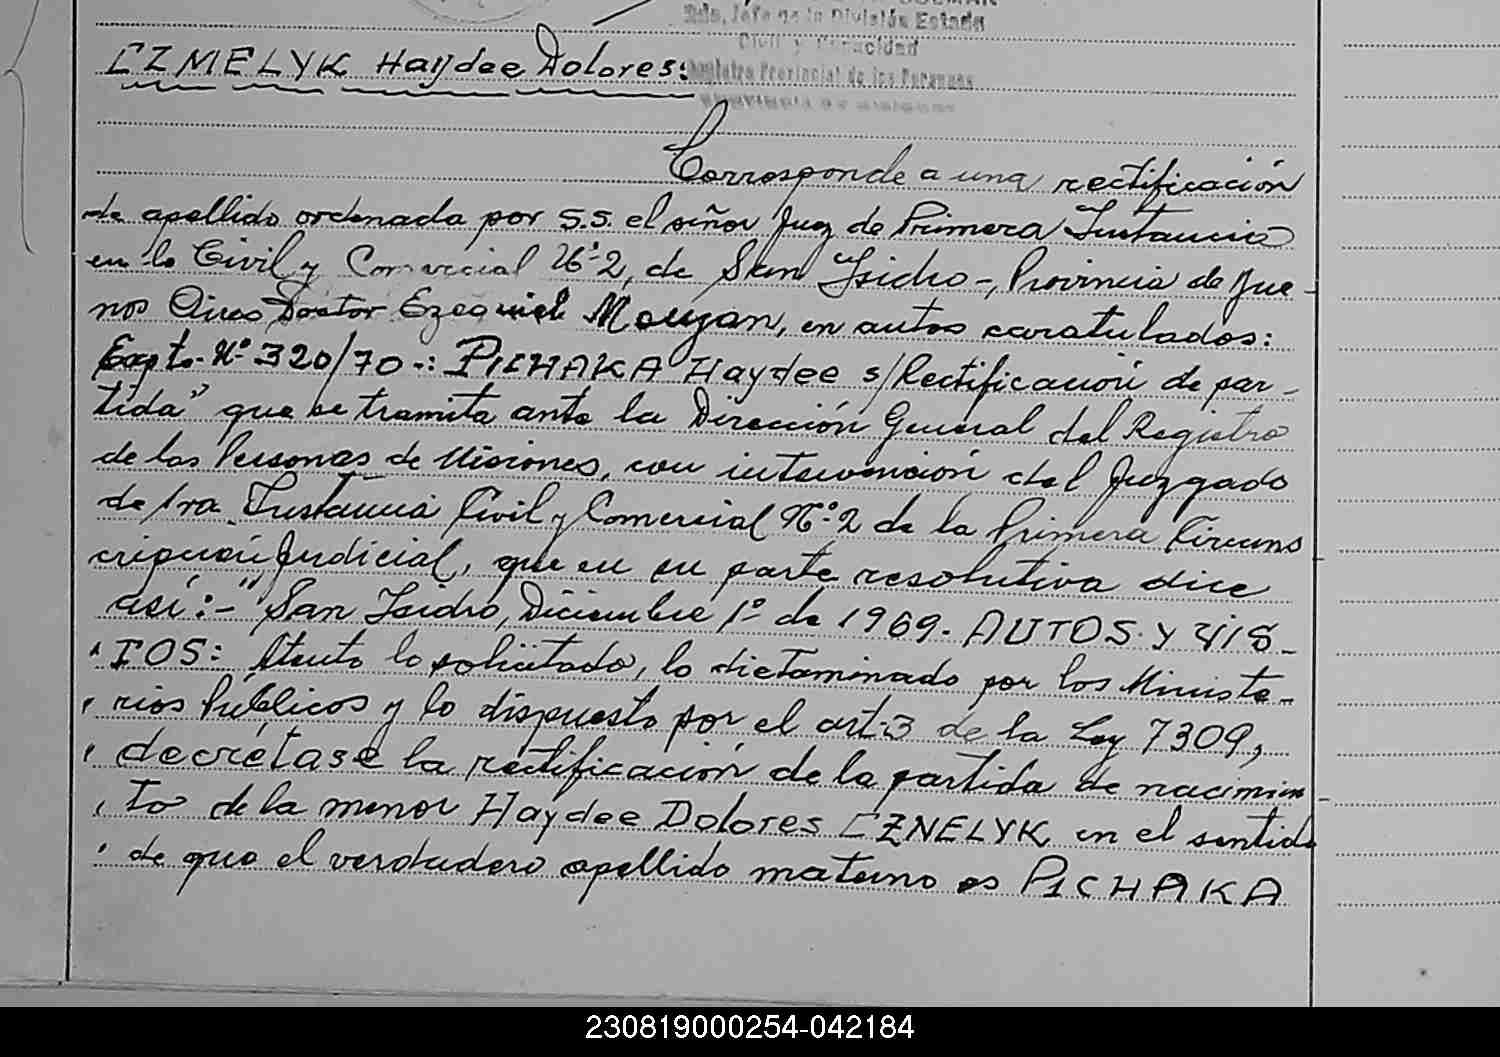 2do. Jefe de la División Estado
Civil y Capacidad
Registro Provincial de las Personas
CZMELYK Haydee Dolores:
Corresponde a una rectificación
de apellido ordenada por S.S. el señor Juez de Primera Instancia
en lo Civil y Comercial Nº 2, de San Isidro-, Provincia de Bue-
nos Aires Doctor Ezequiel Mouzan, en autos caratulados:
Expte. Nº 320/70-: PICHAKA Haydee s/Rectificación de par-
tida" que se tramita ante la Dirección General del Registro
de las Personas de Misiones, con intervención del Juzgado
de 1ra. Instancia Civil y Comercial Nº 2 de la Primera Circuns
cripción Judicial, que en su parte resolutiva dice
así:-" San Isidro, Diciembre 1º de 1969. AUTOS Y VIS-
" TOS: Atento lo solicitado, lo dictaminado por los Ministe-
" rios Públicos y lo dispuesto por el art. 3 de la Ley 7309,
" decrétase la rectificación de la partida de nacimien
" to de la menor Haydee Dolores CZNELYK en el sentido
" de que el verdadero apellido materno es PICHAKA
230819000254-042184